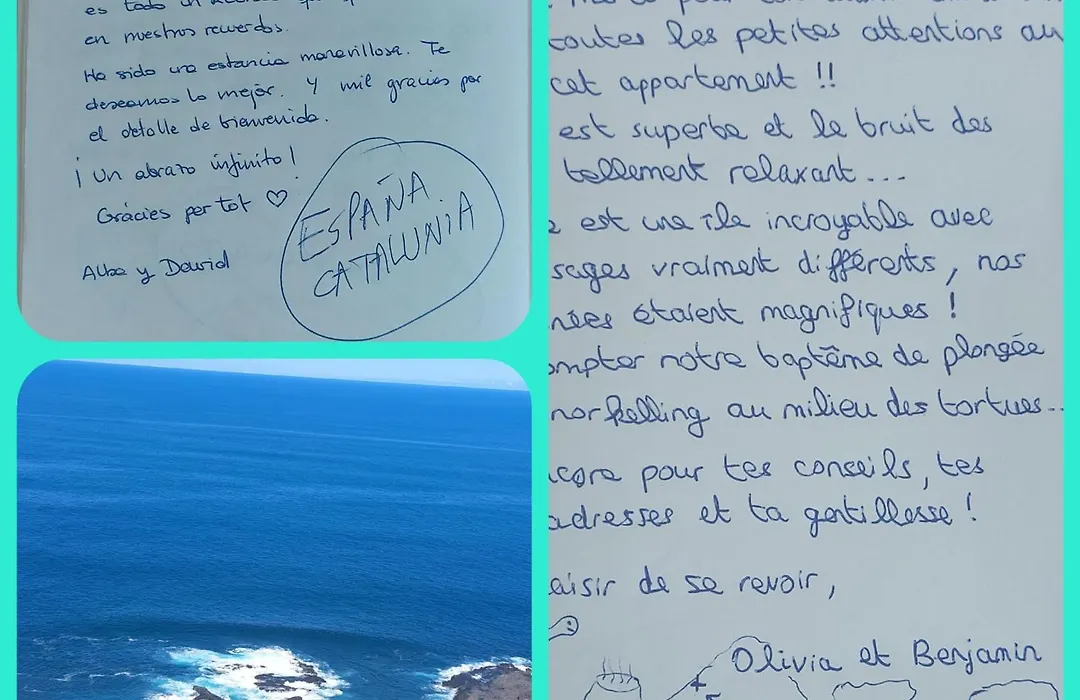 es todo un
en nuestros recuerdos.
Ha sido una estancia maravillosa. Te
deseamos lo mejor. Y mil gracias por
el detalle de bienvenida.
¡Un abrazo infinito!
Gràcies per tot ♡
Alba y David
ESPAÑA.
CATALUNIA
toutes les petites attentions au
cet appartement !!
est superbe et le bruit des
tellement relaxant...
est une île incroyable avec
sages vraiment différents, nos
nées étaient magnifiques !
ompter notre baptême de plongée
norkelling au milieu des tortues...
core pour tes conseils, tes
adresses et ta gentillesse !
aisir de se revoir,
Olivia et Benjamin